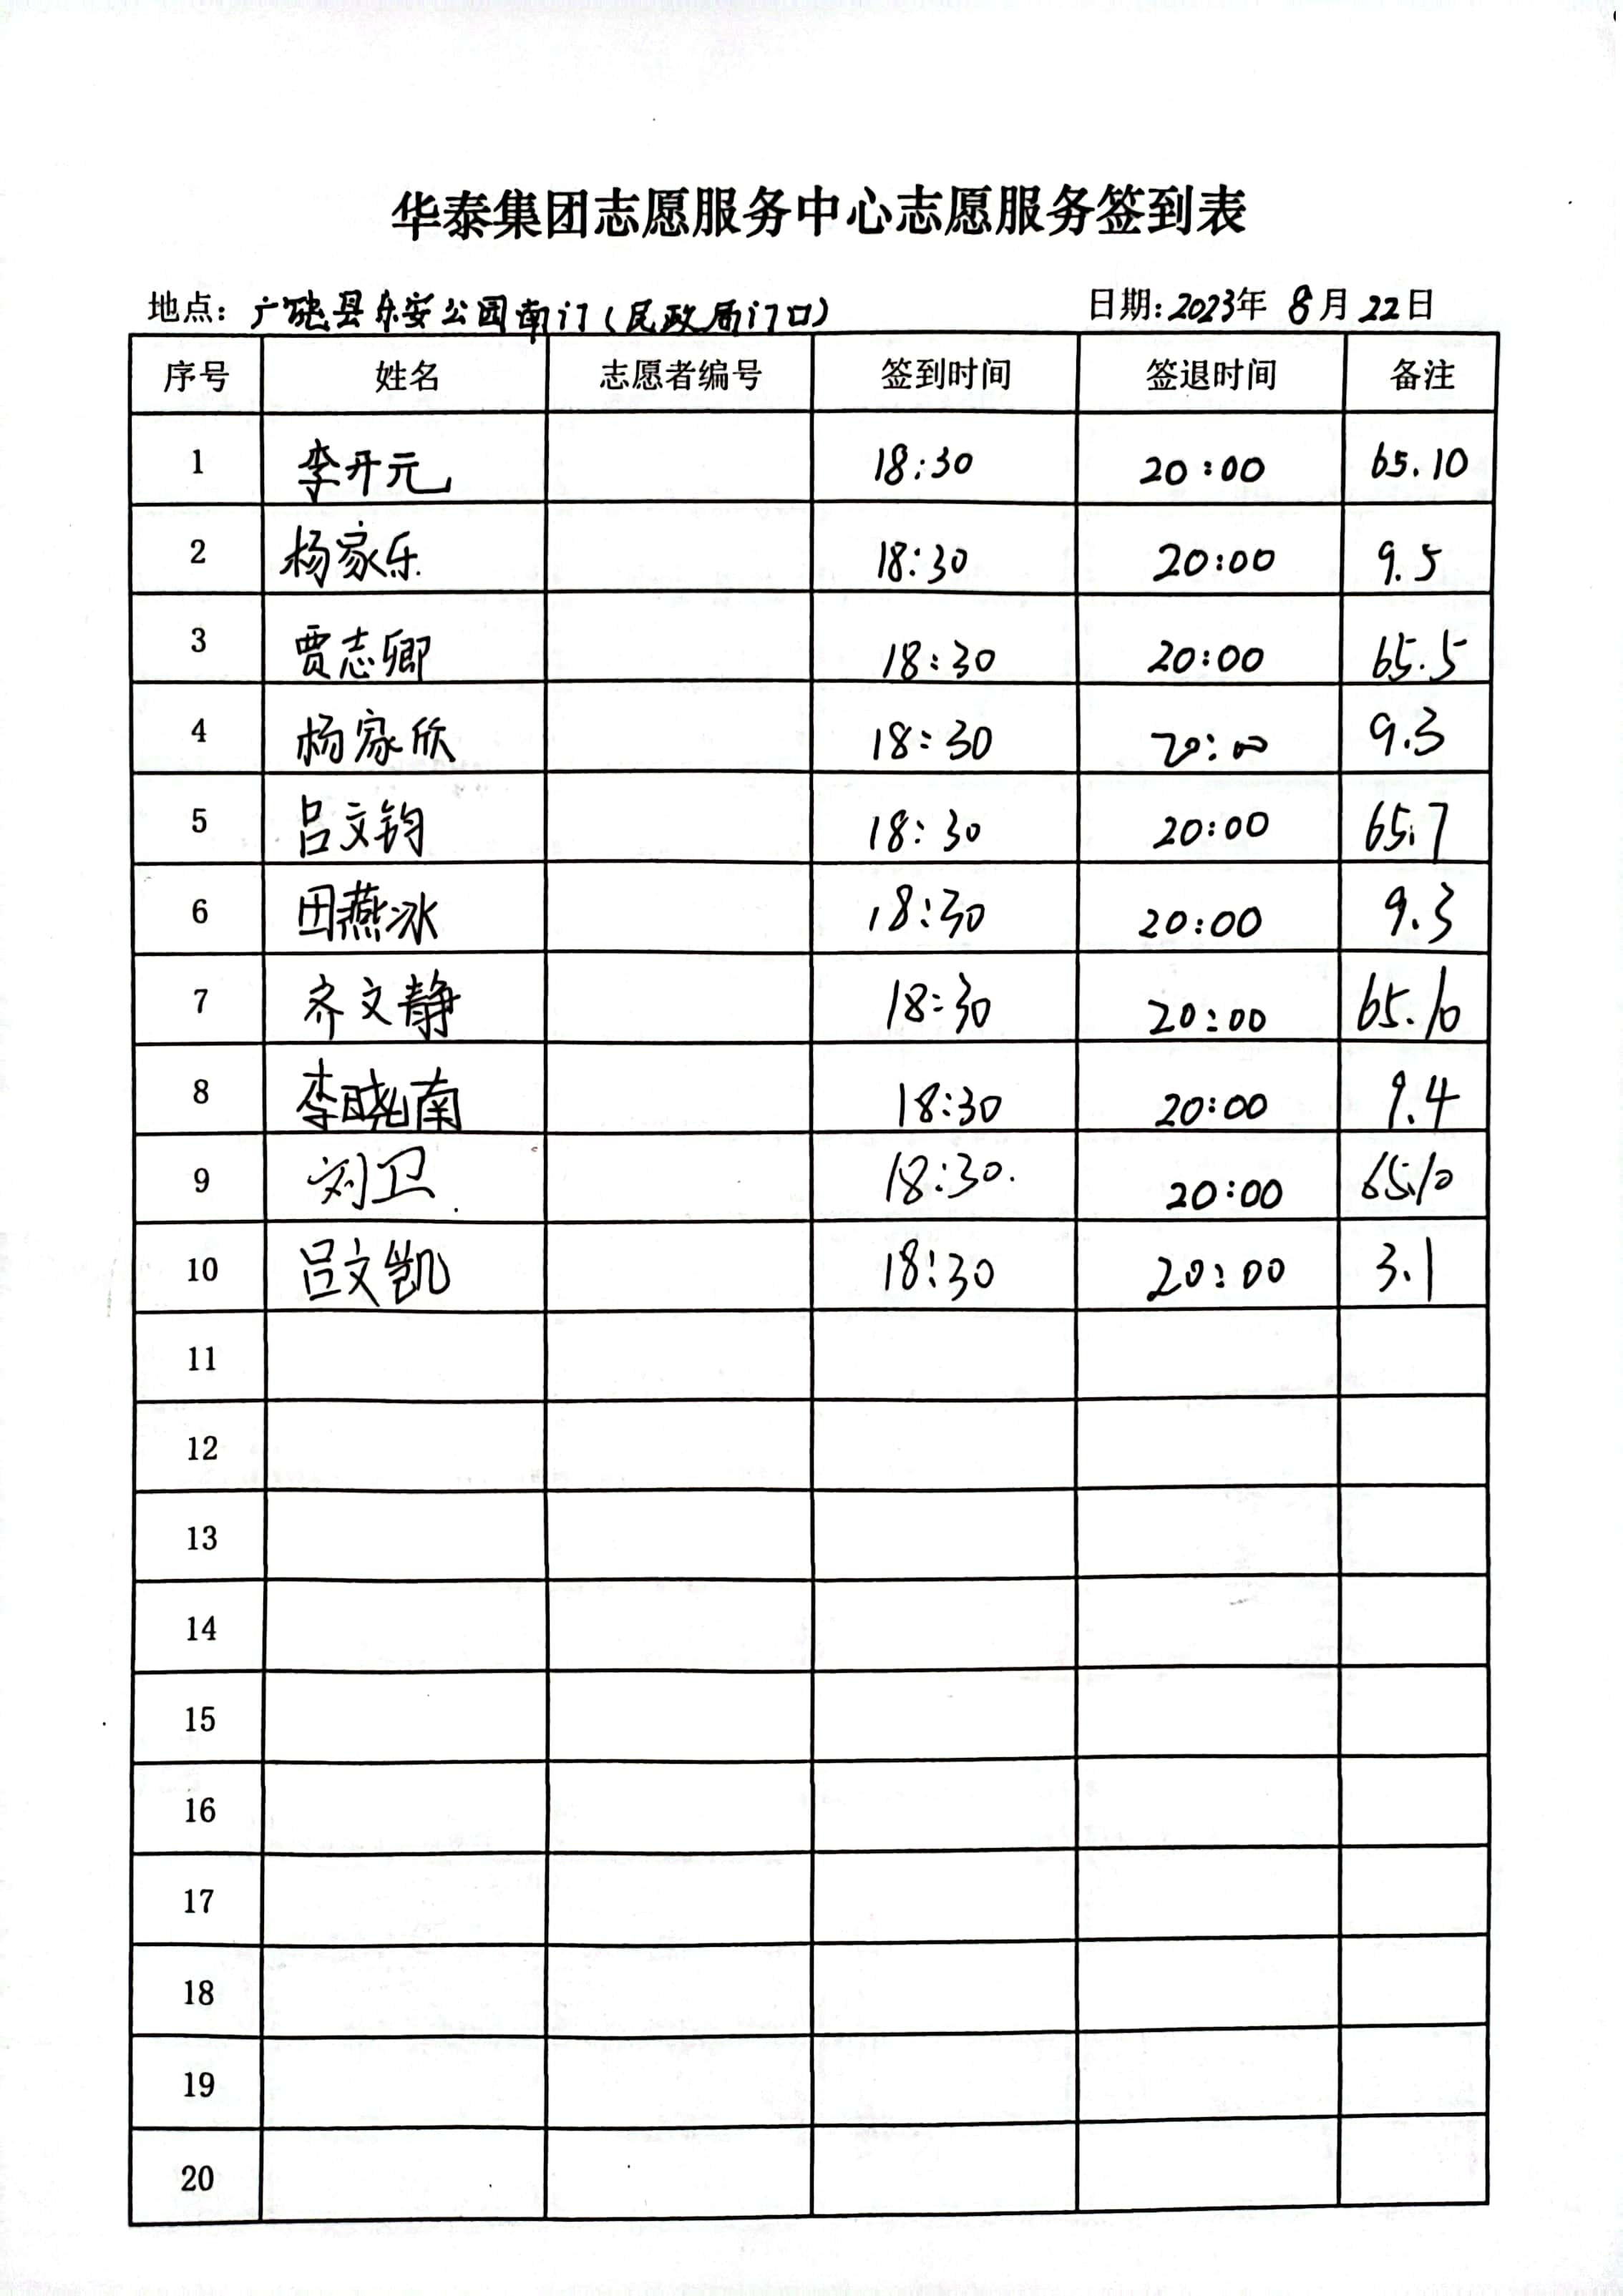 华泰集团志愿服务中心志愿服务签到表
地点: 广饶县乐安公园南门(民政局门口) 日期: 2023年 8月 22日
序号 姓名 志愿者编号 签到时间 签退时间 备注
1 李开元 18:30 20:00 65.10
2 杨家乐 18:30 20:00 9.5
3 贾志卿 18:30 20:00 65.5
4 杨家欣 18:30 20:00 9.3
5 吕文钧 18:30 20:00 65.7
6 田燕冰 18:30 20:00 9.3
7 齐文静 18:30 20:00 65.10
8 李晓南 18:30 20:00 9.4
9 刘卫 18:30 20:00 65.10
10 吕文凯 18:30 20:00 3.1
11
12
13
14
15
16
17
18
19
20